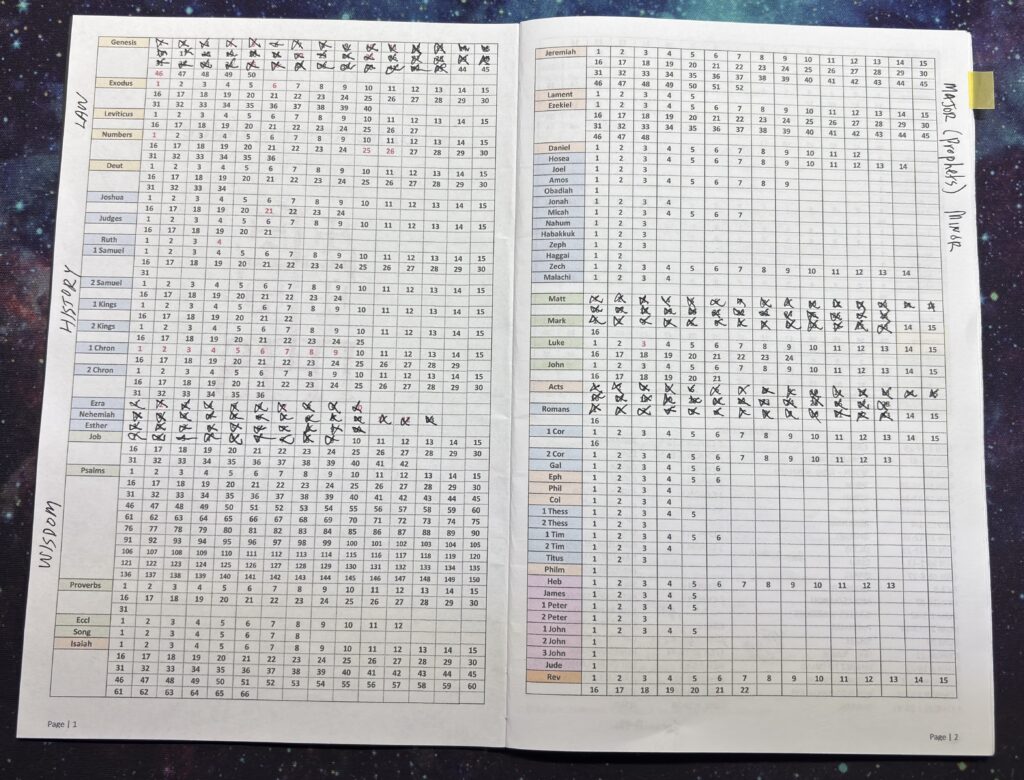 LAW
HISTORY
WISDOM
Genesis
44 45
46 47 48 49 50
Exodus 1 2 3 4 5 6 7 8 9 10 11 12 13 14 15
16 17 18 19 20 21 22 23 24 25 26 27 28 29 30
31 32 33 34 35 36 37 38 39 40
Leviticus 1 2 3 4 5 6 7 8 9 10 11 12 13 14 15
16 17 18 19 20 21 22 23 24 25 26 27
Numbers 1 2 3 4 5 6 7 8 9 10 11 12 13 14 15
16 17 18 19 20 21 22 23 24 25 26 27 28 29 30
31 32 33 34 35 36
Deut 1 2 3 4 5 6 7 8 9 10 11 12 13 14 15
16 17 18 19 20 21 22 23 24 25 26 27 28 29 30
31 32 33 34
Joshua 1 2 3 4 5 6 7 8 9 10 11 12 13 14 15
16 17 18 19 20 21 22 23 24
Judges 1 2 3 4 5 6 7 8 9 10 11 12 13 14 15
16 17 18 19 20 21
Ruth 1 2 3 4
1 Samuel 1 2 3 4 5 6 7 8 9 10 11 12 13 14 15
16 17 18 19 20 21 22 23 24 25 26 27 28 29 30
31
2 Samuel 1 2 3 4 5 6 7 8 9 10 11 12 13 14 15
16 17 18 19 20 21 22 23 24
1 Kings 1 2 3 4 5 6 7 8 9 10 11 12 13 14 15
16 17 18 19 20 21 22
2 Kings 1 2 3 4 5 6 7 8 9 10 11 12 13 14 15
16 17 18 19 20 21 22 23 24 25
1 Chron 1 2 3 4 5 6 7 8 9 10 11 12 13 14 15
16 17 18 19 20 21 22 23 24 25 26 27 28 29
2 Chron 1 2 3 4 5 6 7 8 9 10 11 12 13 14 15
16 17 18 19 20 21 22 23 24 25 26 27 28 29 30
31 32 33 34 35 36
Ezra
Nehemiah
Esther
Job 10 11 12 13 14 15
16 17 18 19 20 21 22 23 24 25 26 27 28 29 30
31 32 33 34 35 36 37 38 39 40 41 42
Psalms 1 2 3 4 5 6 7 8 9 10 11 12 13 14 15
16 17 18 19 20 21 22 23 24 25 26 27 28 29 30
31 32 33 34 35 36 37 38 39 40 41 42 43 44 45
46 47 48 49 50 51 52 53 54 55 56 57 58 59 60
61 62 63 64 65 66 67 68 69 70 71 72 73 74 75
76 77 78 79 80 81 82 83 84 85 86 87 88 89 90
91 92 93 94 95 96 97 98 99 100 101 102 103 104 105
106 107 108 109 110 111 112 113 114 115 116 117 118 119 120
121 122 123 124 125 126 127 128 129 130 131 132 133 134 135
136 137 138 139 140 141 142 143 144 145 146 147 148 149 150
Proverbs 1 2 3 4 5 6 7 8 9 10 11 12 13 14 15
16 17 18 19 20 21 22 23 24 25 26 27 28 29 30
31
Eccl 1 2 3 4 5 6 7 8 9 10 11 12
Song 1 2 3 4 5 6 7 8
Isaiah 1 2 3 4 5 6 7 8 9 10 11 12 13 14 15
16 17 18 19 20 21 22 23 24 25 26 27 28 29 30
31 32 33 34 35 36 37 38 39 40 41 42 43 44 45
46 47 48 49 50 51 52 53 54 55 56 57 58 59 60
61 62 63 64 65 66
Page | 1
Jeremiah 1 2 3 4 5 6 7 8 9 10 11 12 13 14 15
16 17 18 19 20 21 22 23 24 25 26 27 28 29 30
31 32 33 34 35 36 37 38 39 40 41 42 43 44 45
46 47 48 49 50 51 52
Lament 1 2 3 4 5
Ezekiel 1 2 3 4 5 6 7 8 9 10 11 12 13 14 15
16 17 18 19 20 21 22 23 24 25 26 27 28 29 30
31 32 33 34 35 36 37 38 39 40 41 42 43 44 45
46 47 48
Daniel 1 2 3 4 5 6 7 8 9 10 11 12
Hosea 1 2 3 4 5 6 7 8 9 10 11 12 13 14
Joel 1 2 3
Amos 1 2 3 4 5 6 7 8 9
Obadiah 1
Jonah 1 2 3 4
Micah 1 2 3 4 5 6 7
Nahum 1 2 3
Habakkuk 1 2 3
Zeph 1 2 3
Haggai 1 2
Zech 1 2 3 4 5 6 7 8 9 10 11 12 13 14
Malachi 1 2 3 4
MAJOR (Prophets) MINOR
Matt
Mark 14 15
16
Luke 1 2 3 4 5 6 7 8 9 10 11 12 13 14 15
16 17 18 19 20 21 22 23 24
John 1 2 3 4 5 6 7 8 9 10 11 12 13 14 15
16 17 18 19 20 21
Acts
Romans 14 15
16
1 Cor 1 2 3 4 5 6 7 8 9 10 11 12 13 14 15
16
2 Cor 1 2 3 4 5 6 7 8 9 10 11 12 13
Gal 1 2 3 4 5 6
Eph 1 2 3 4 5 6
Phil 1 2 3 4
Col 1 2 3 4
1 Thess 1 2 3 4 5
2 Thess 1 2 3
1 Tim 1 2 3 4 5 6
2 Tim 1 2 3 4
Titus 1 2 3
Philm 1
Heb 1 2 3 4 5 6 7 8 9 10 11 12 13
James 1 2 3 4 5
1 Peter 1 2 3 4 5
2 Peter 1 2 3
1 John 1 2 3 4 5
2 John 1
3 John 1
Jude 1
Rev 1 2 3 4 5 6 7 8 9 10 11 12 13 14 15
16 17 18 19 20 21 22
Page | 2